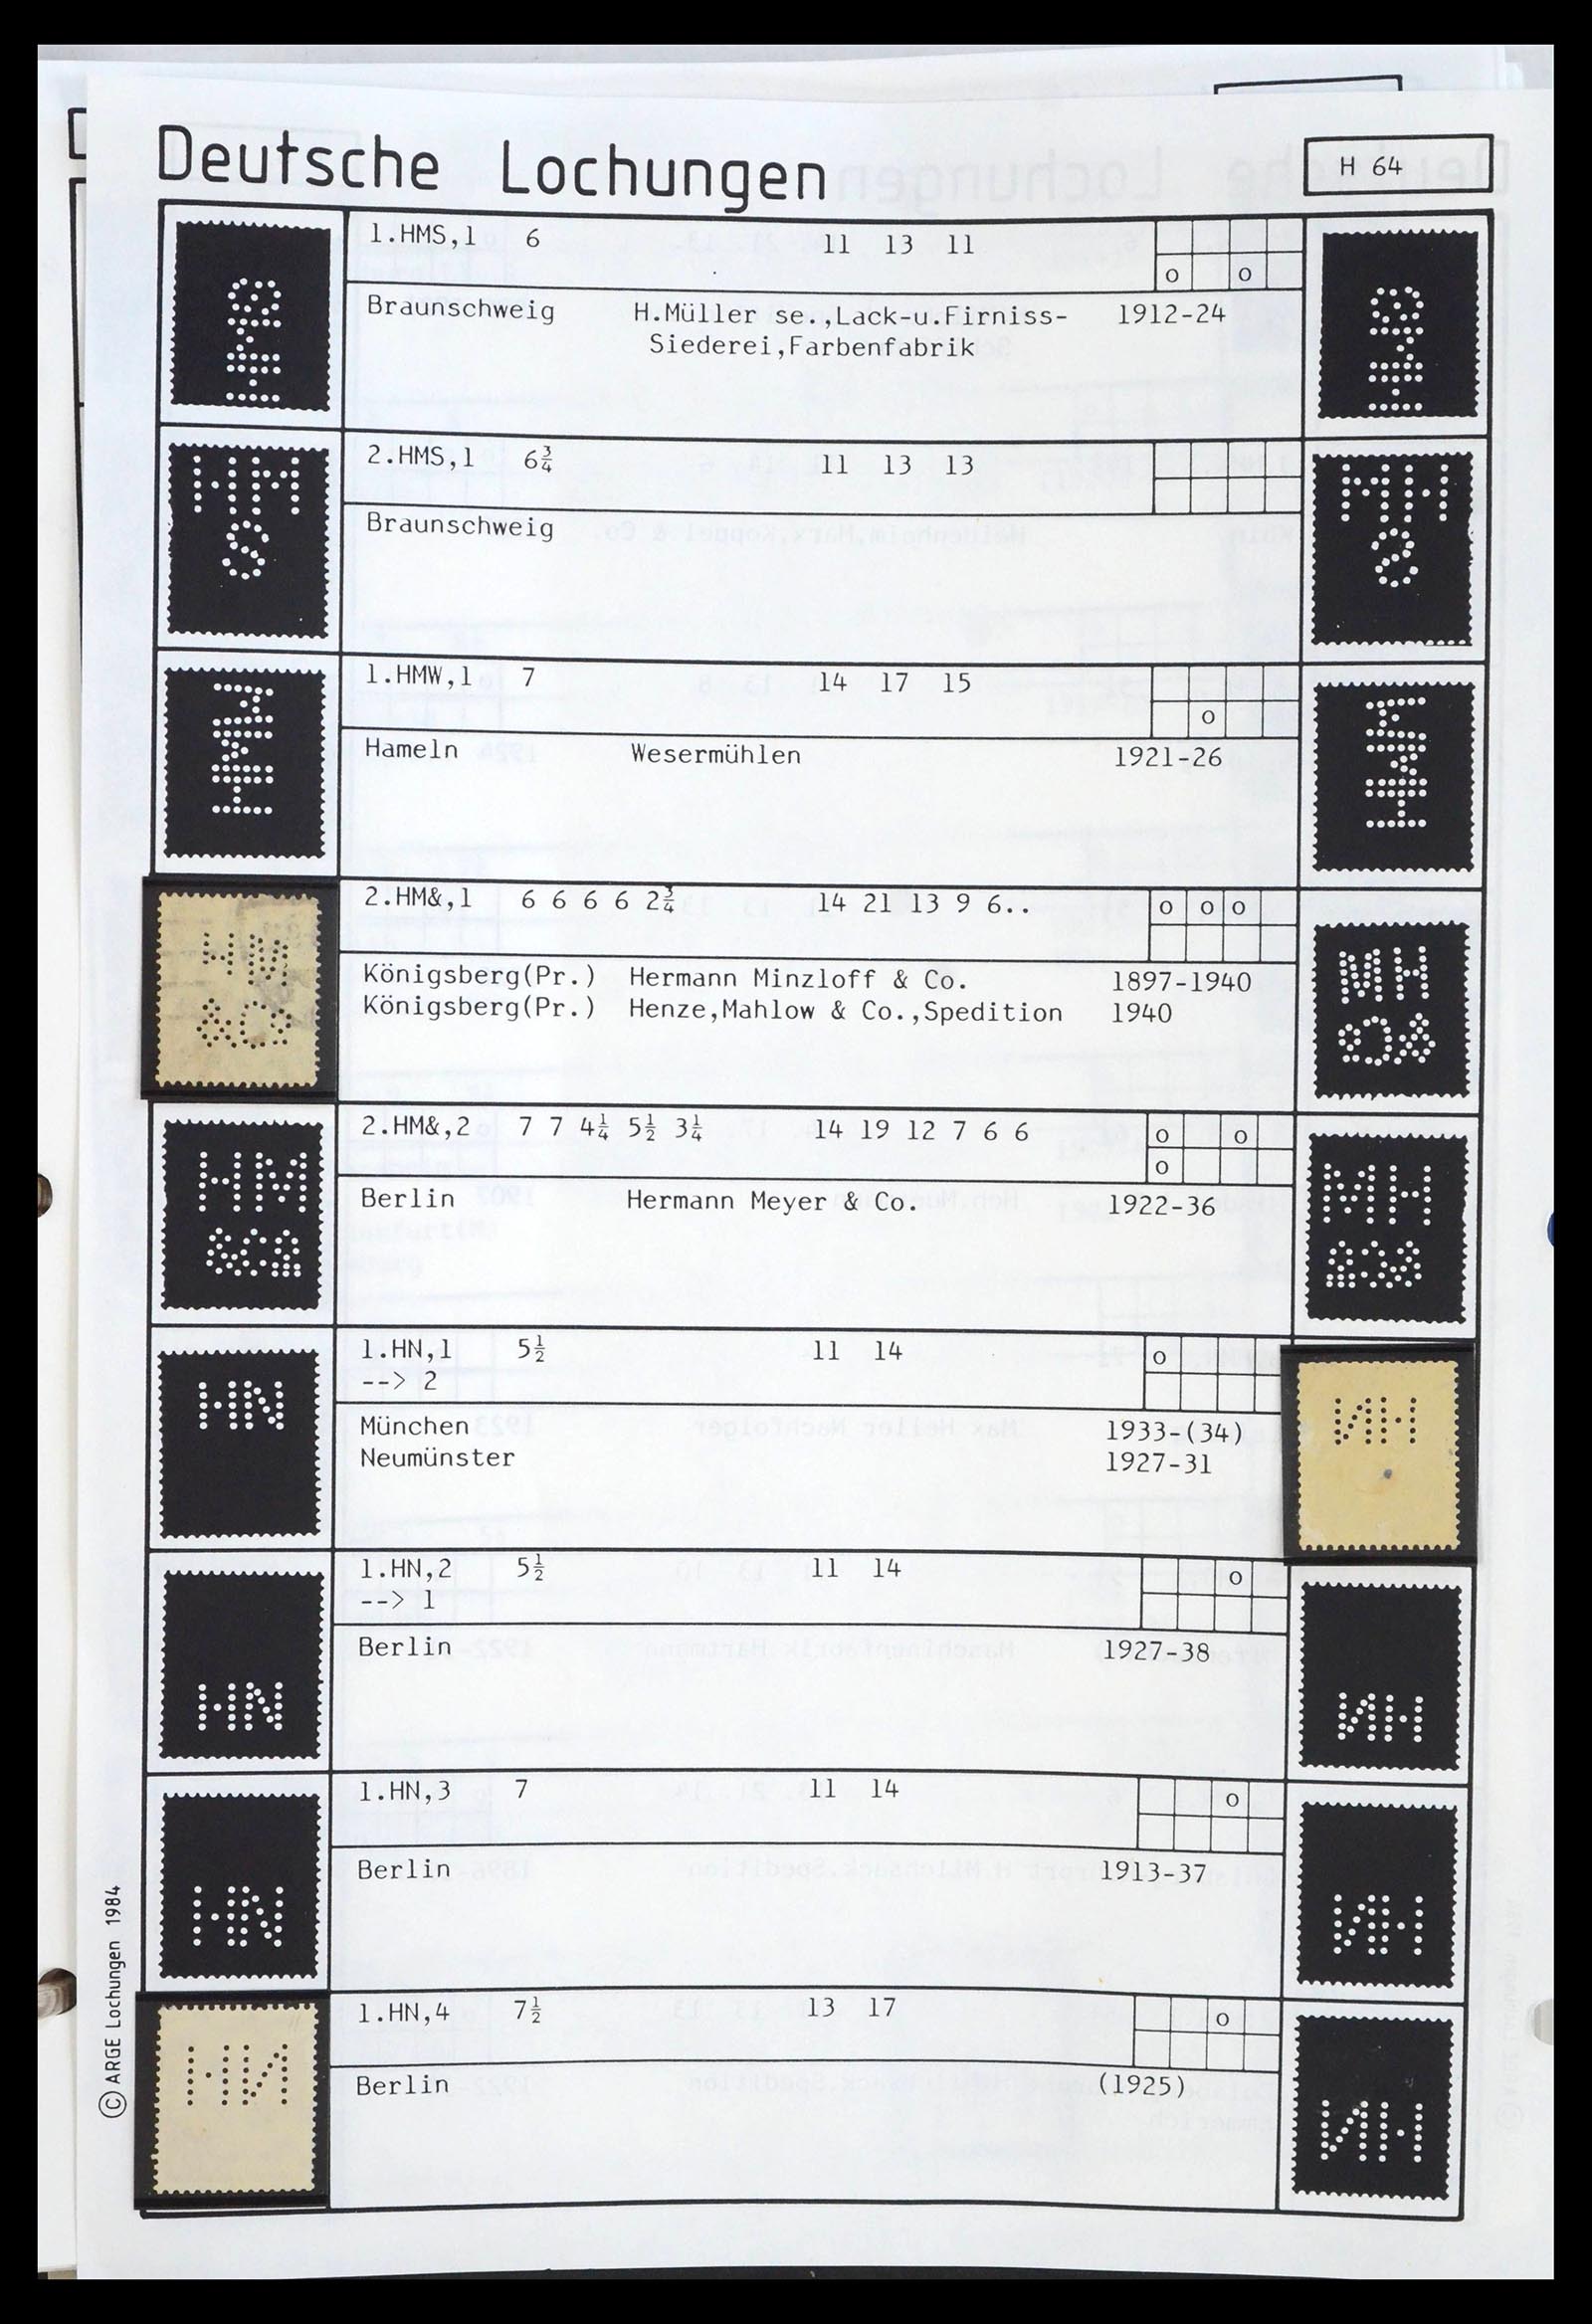 Deutsche Lochungen
H 64
1.HMS,1 6 11 13 11
o o
Braunschweig H.Müller se.,Lack-u.Firniss- 1912-24
Siederei,Farbenfabrik
HMS
HMS
2.HMS,1 6¾ 11 13 13
Braunschweig
HM
S
HM
S
1.HMW,1 7 14 17 15
o
Hameln Wesermühlen 1921-26
HMW
HMW
2.HM&,1 6 6 6 6 2¾ 14 21 13 9 6..
o o o
Königsberg(Pr.) Hermann Minzloff & Co. 1897-1940
Königsberg(Pr.) Henze,Mahlow & Co.,Spedition 1940
HM
&Co
HM
&Co
2.HM&,2 7 7 4¼ 5½ 3¼ 14 19 12 7 6 6
o o
o
Berlin Hermann Meyer & Co. 1922-36
HM
HM
1.HN,1 5½ 11 14
o
--> 2
München 1933-(34)
Neumünster 1927-31
HN
HN
1.HN,2 5½ 11 14
o
--> 1
Berlin 1927-38
HN
HN
1.HN,3 7 11 14
o
Berlin 1913-37
HN
HN
1.HN,4 7½ 13 17
o
Berlin (1925)
HN
HN
© ARGE Lochungen 1984